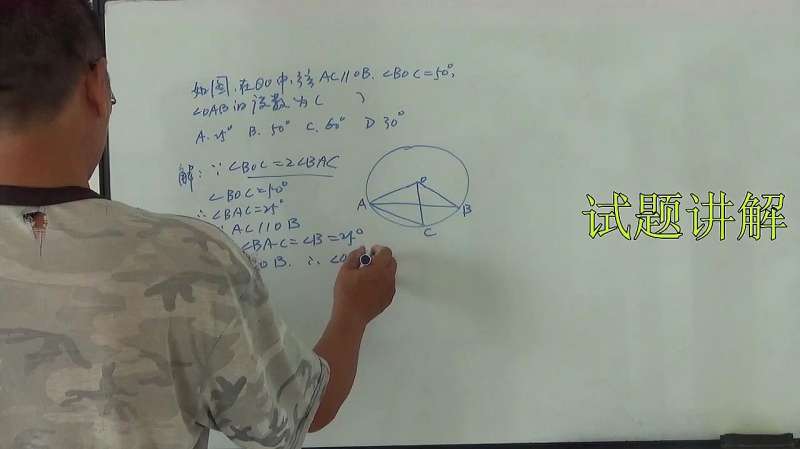 如图,在⊙O中,弦AC∥OB,∠BOC=50°,
∠OAB的度数为( )
A.25° B.50° C.60° D.30°
解:∵∠BOC=2∠BAC
∠BOC=50°
∴∠BAC=25°
AC∥OB
∠BAC=∠B=25°
OB. ∴∠O
A
B
C
试题讲解